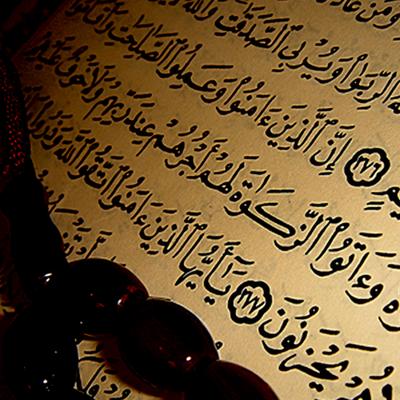 وَمَنْ عَادَ
ٱلرِّبَوٰا۟ وَيُرْبِى ٱلصَّدَقَٰتِ وَٱللَّهُ
يمٍ ٢٧٦ إِنَّ ٱلَّذِينَ ءَامَنُوا۟ وَعَمِلُوا۟ ٱلصَّٰلِحَٰتِ وَأَقَامُوا۟
ةَ وَءَاتَوُا۟ ٱلزَّكَوٰةَ لَهُمْ أَجْرُهُمْ عِندَ رَبِّهِمْ وَلَا خَوْفٌ عَلَيْهِمْ
هُمْ يَحْزَنُونَ ٢٧٧ يَٰٓأَيُّهَا ٱلَّذِينَ ءَامَنُوا۟ ٱتَّقُوا۟ ٱللَّهَ وَذَرُوا۟